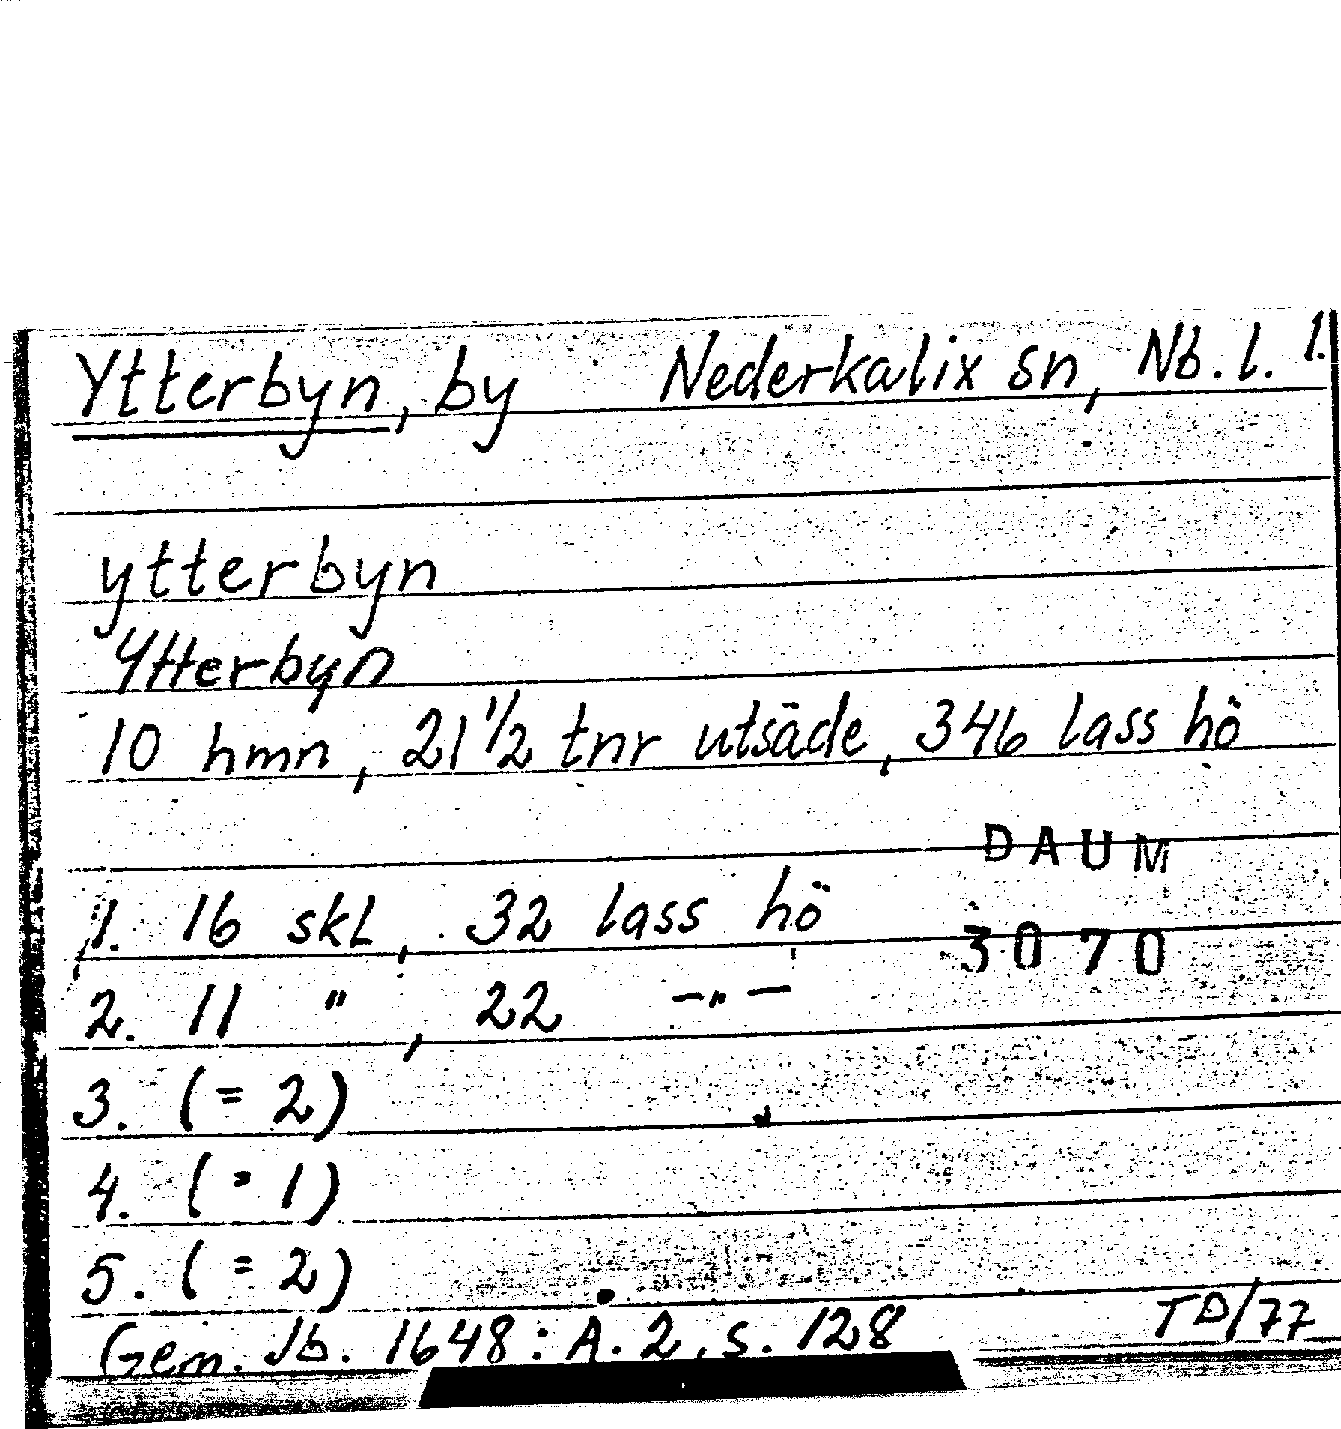 Ytterbyn, by Nederkalix sn, Nb. l. 1.
ytterbyn
Ytterbyn
10 hmn, 21 1/2 tnr utsäde, 346 lass hö
DAUM
1. 16 skl, 32 lass hö
3070
2. 11 " , 22 —"—
3. (= 2)
4. (= 1)
5. (= 2)
Gem. Jb. 1648: A. 2, s. 128 TD/77